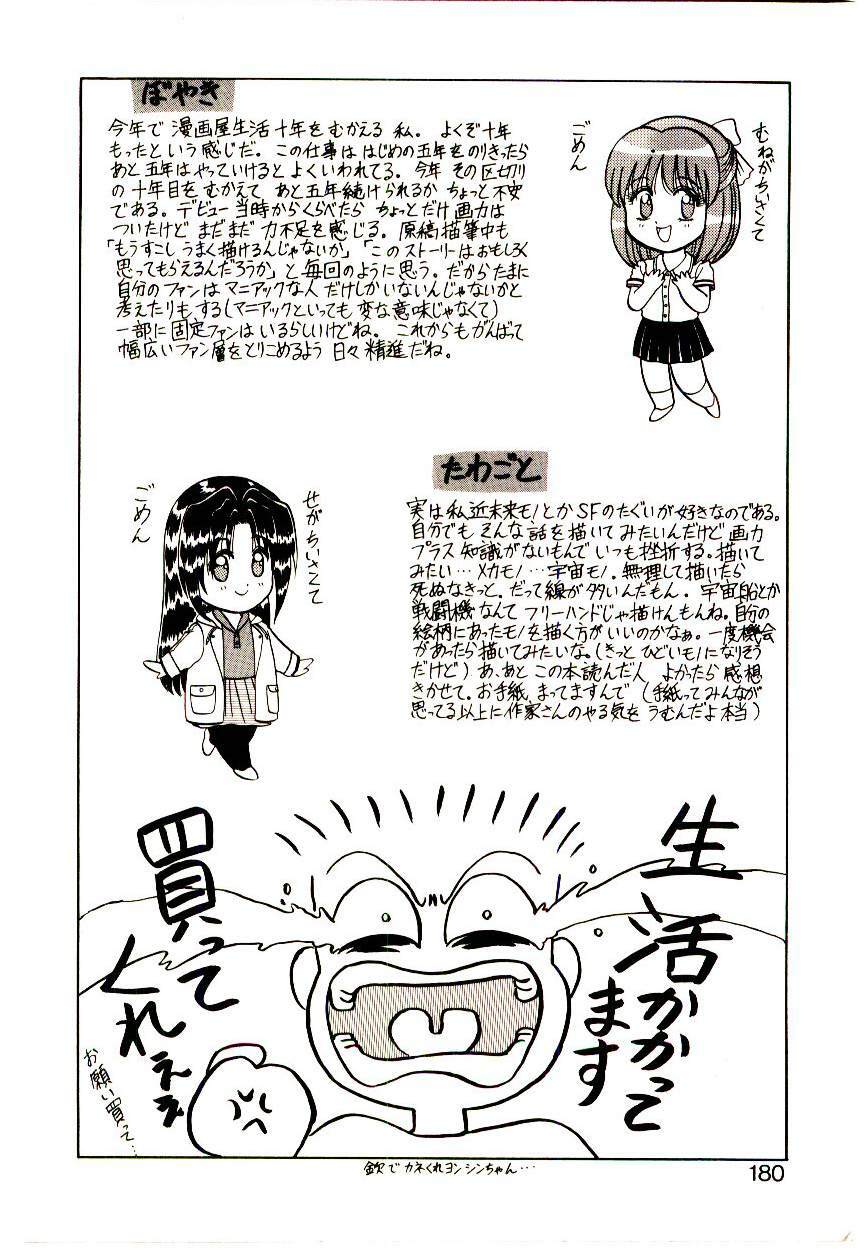 ぼやき
今年で 漫画屋生活 十年をむかえる 私。 よくぞ十年
もったという 感じだ。 この仕事は はじめの五年をのりきったら
あと五年はやっていけると よくいわれてる。今年 その区切り
の十年目を むかえて あと五年続けられるか ちょっと不安
である。デビュー 当時からくらべたら ちょっとだけ 画力は
ついたけど まだまだ 力不足を感じる。原稿描筆中も
「もうすこし うまく描けるんじゃないか」「このストーリーはおもしろく
思ってもらえるんだろうか」と 毎回のように思う。だからたまに
自分のファンは マニアックな人 だけしかいないんじゃないかと
考えたりも する(マニアックといっても 変な意味じゃなくて)
一部に 固定ファンは いるらしいけどね。 これからも がんばって
幅広いファン層をとりこめるよう 日々 精進だね。
むねがちいさくて
ごめん
たわごと
実は私近未来モノとか SFのたぐいが好きなのである。
自分でも そんな話を描いてみたいんだけど 画力
プラス 知識がないもんで いつも挫折する。描いて
みたい…メカモノ …宇宙モノ。無理して描いたら
死ぬなきっと。だって線が多いんだもん. 宇宙船とか
戦闘機なんて フリーハンドじゃ描けんもんね。自分の
絵柄にあったモノを描く方がいいのかなぁ。一度機会
があったら描いてみたいな。(きっと ひどいモノになりそう
だけど) あ、あと この本読んだ人 よかったら 感想
きかせて。お手紙、まってますんで (手紙ってみんなが
思ってる以上に作家さんのやる気を うむんだよ本当)
せがちいさくて
ごめん
生活かかって
ます
買って
くれぇぇ
お願い買って…
金欠で カネくれヨン シンちゃん…
180